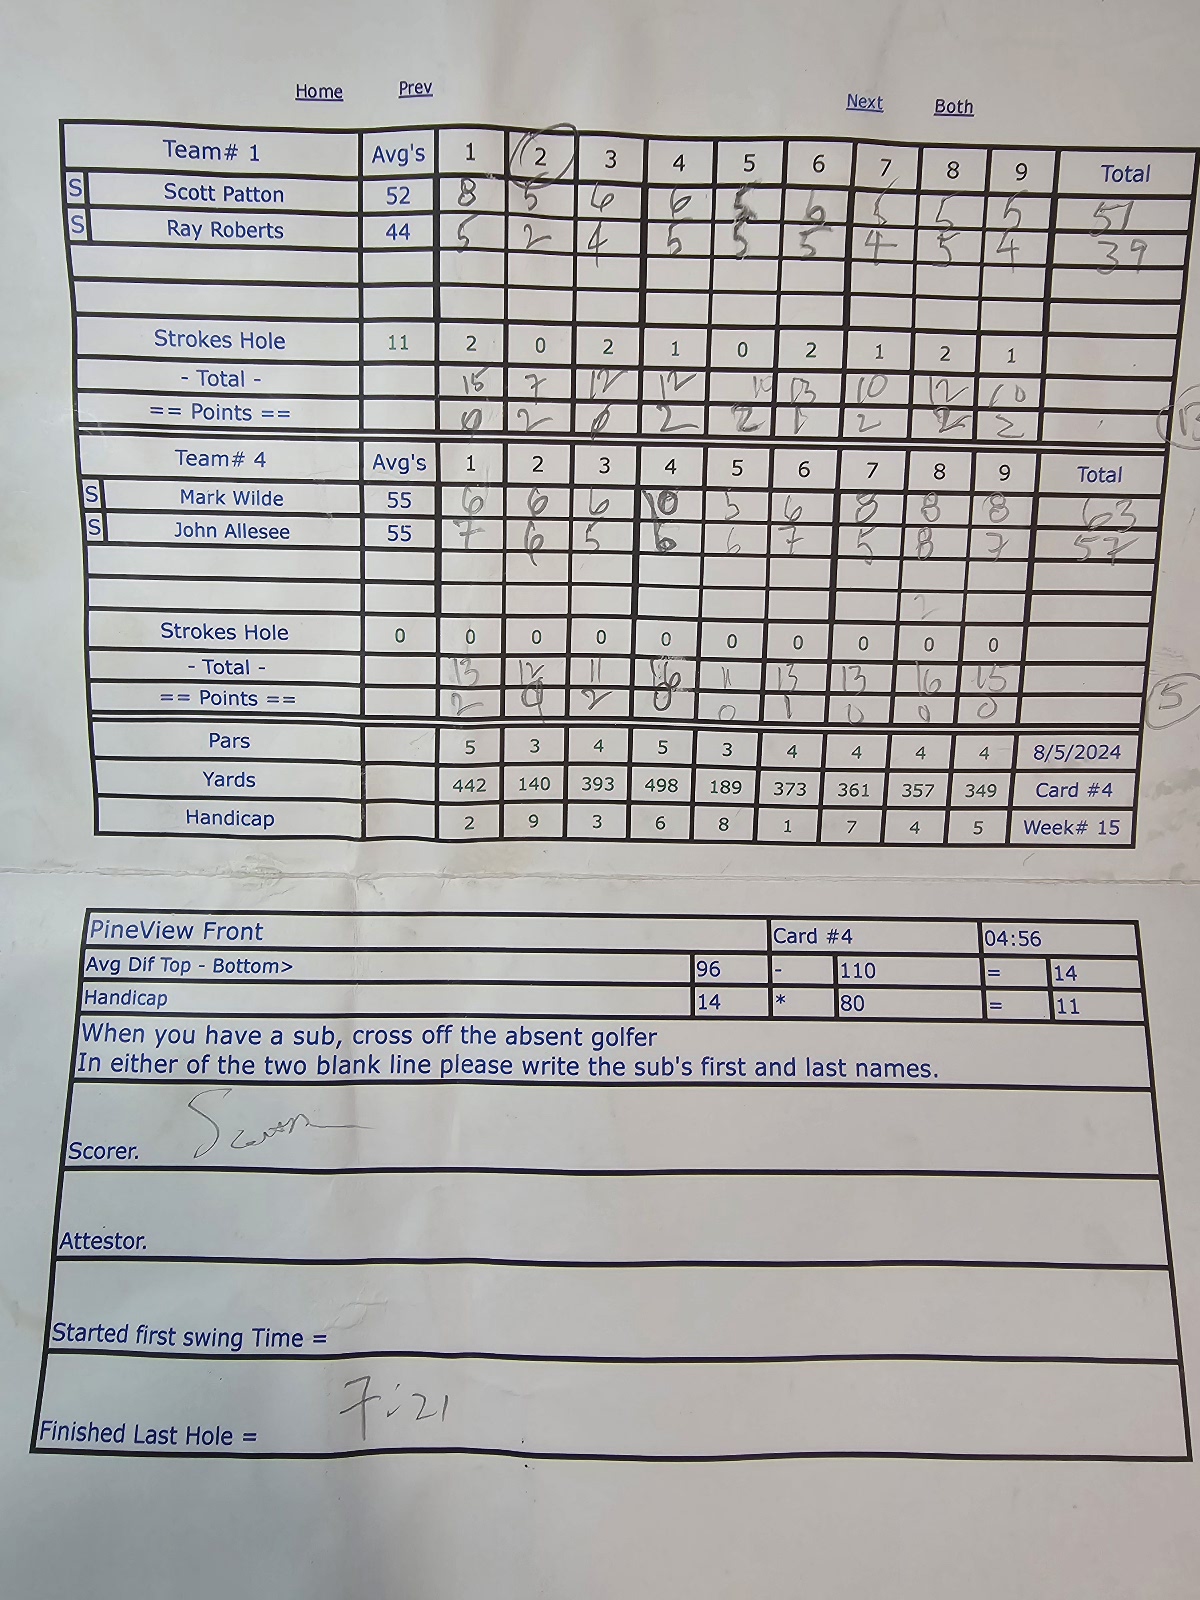 Home Prev Next Both
Team# 1 Avg's 1 2 3 4 5 6 7 8 9 Total
S Scott Patton 52 8 5 6 6 5 6 5 5 5 51
S Ray Roberts 44 5 2 4 5 5 5 4 5 4 39
Strokes Hole 11 2 0 2 1 0 2 1 2 1
- Total - 15 7 12 12 10 13 10 12 10
== Points == 0 2 0 2 2 1 2 2 2
Team# 4 Avg's 1 2 3 4 5 6 7 8 9 Total
S Mark Wilde 55 6 6 6 10 5 6 8 8 8 63
S John Allesee 55 7 6 5 6 6 7 5 8 7 57
2
Strokes Hole 0 0 0 0 0 0 0 0 0 0
- Total - 13 12 11 16 11 13 13 16 15
== Points == 2 0 2 0 0 1 0 0 0 5
Pars 5 3 4 5 3 4 4 4 4 8/5/2024
Yards 442 140 393 498 189 373 361 357 349 Card #4
Handicap 2 9 3 6 8 1 7 4 5 Week# 15
PineView Front Card #4 04:56
Avg Dif Top - Bottom> 96 - 110 = 14
Handicap 14 * 80 = 11
When you have a sub, cross off the absent golfer
In either of the two blank line please write the sub's first and last names.
Scorer.
Attestor.
Started first swing Time =
Finished Last Hole = 7:21